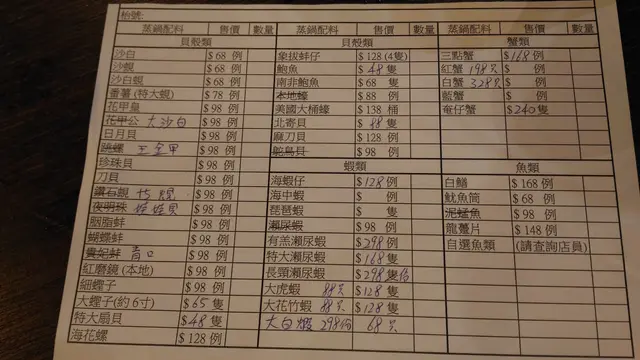 枱號:
蒸鍋配料 售價 數量 蒸鍋配料 售價 數量 蒸鍋配料 售價 數量
貝殼類 貝殼類 蟹類
沙白 $68 例 象拔蚌仔 $128 (4隻) 三點蟹 $168 例
沙蜆 $68 例 鮑魚 $48 隻 紅蟹 198只 $ 例
沙白蜆 $68 例 南非鮑魚 $68 隻 白蟹 328只 $ 例
番薯(特大蜆) $78 例 本地蠔 $88 例 藍蟹 $ 例
花甲皇 $98 例 美國大桶蠔 $138 桶 奄仔蟹 $240隻
花甲公 大沙白 $98 例 北寄貝 $88 隻
日月貝 $98 例 麻刀貝 $128 例
跳螺 王金甲 $98 例 鴕鳥貝 $98 例
珍珠貝 $98 例 蝦類 魚類
刀貝 $98 例 海蝦仔 $128 例 白鱔 $168 例
鑽石蜆 $98 例 海中蝦 $ 例 魷魚筒 $68 例
夜明珠 娃娃貝 $98 例 琵琶蝦 $ 隻 泥鯭魚 $98 例
胭脂蚌 $98 例 瀨尿蝦 $98 例 龍躉片 $148 例
蝴蝶蚌 $98 例 有羔瀨尿蝦 $298 例 自選魚類 (請查詢店員)
貴妃蚌 青口 $98 例 特大瀨尿蝦 $168 隻
紅磨鏡(本地) $98 例 長頸瀨尿蝦 $298 隻
細蟶子 $98 例 大虎蝦 88只 $128 隻
大蟶子(約6寸) $65 隻 大花竹蝦 88只 $128 隻
特大扇貝 $48 隻 大白蝦 298份 68只
海花螺 $128 例